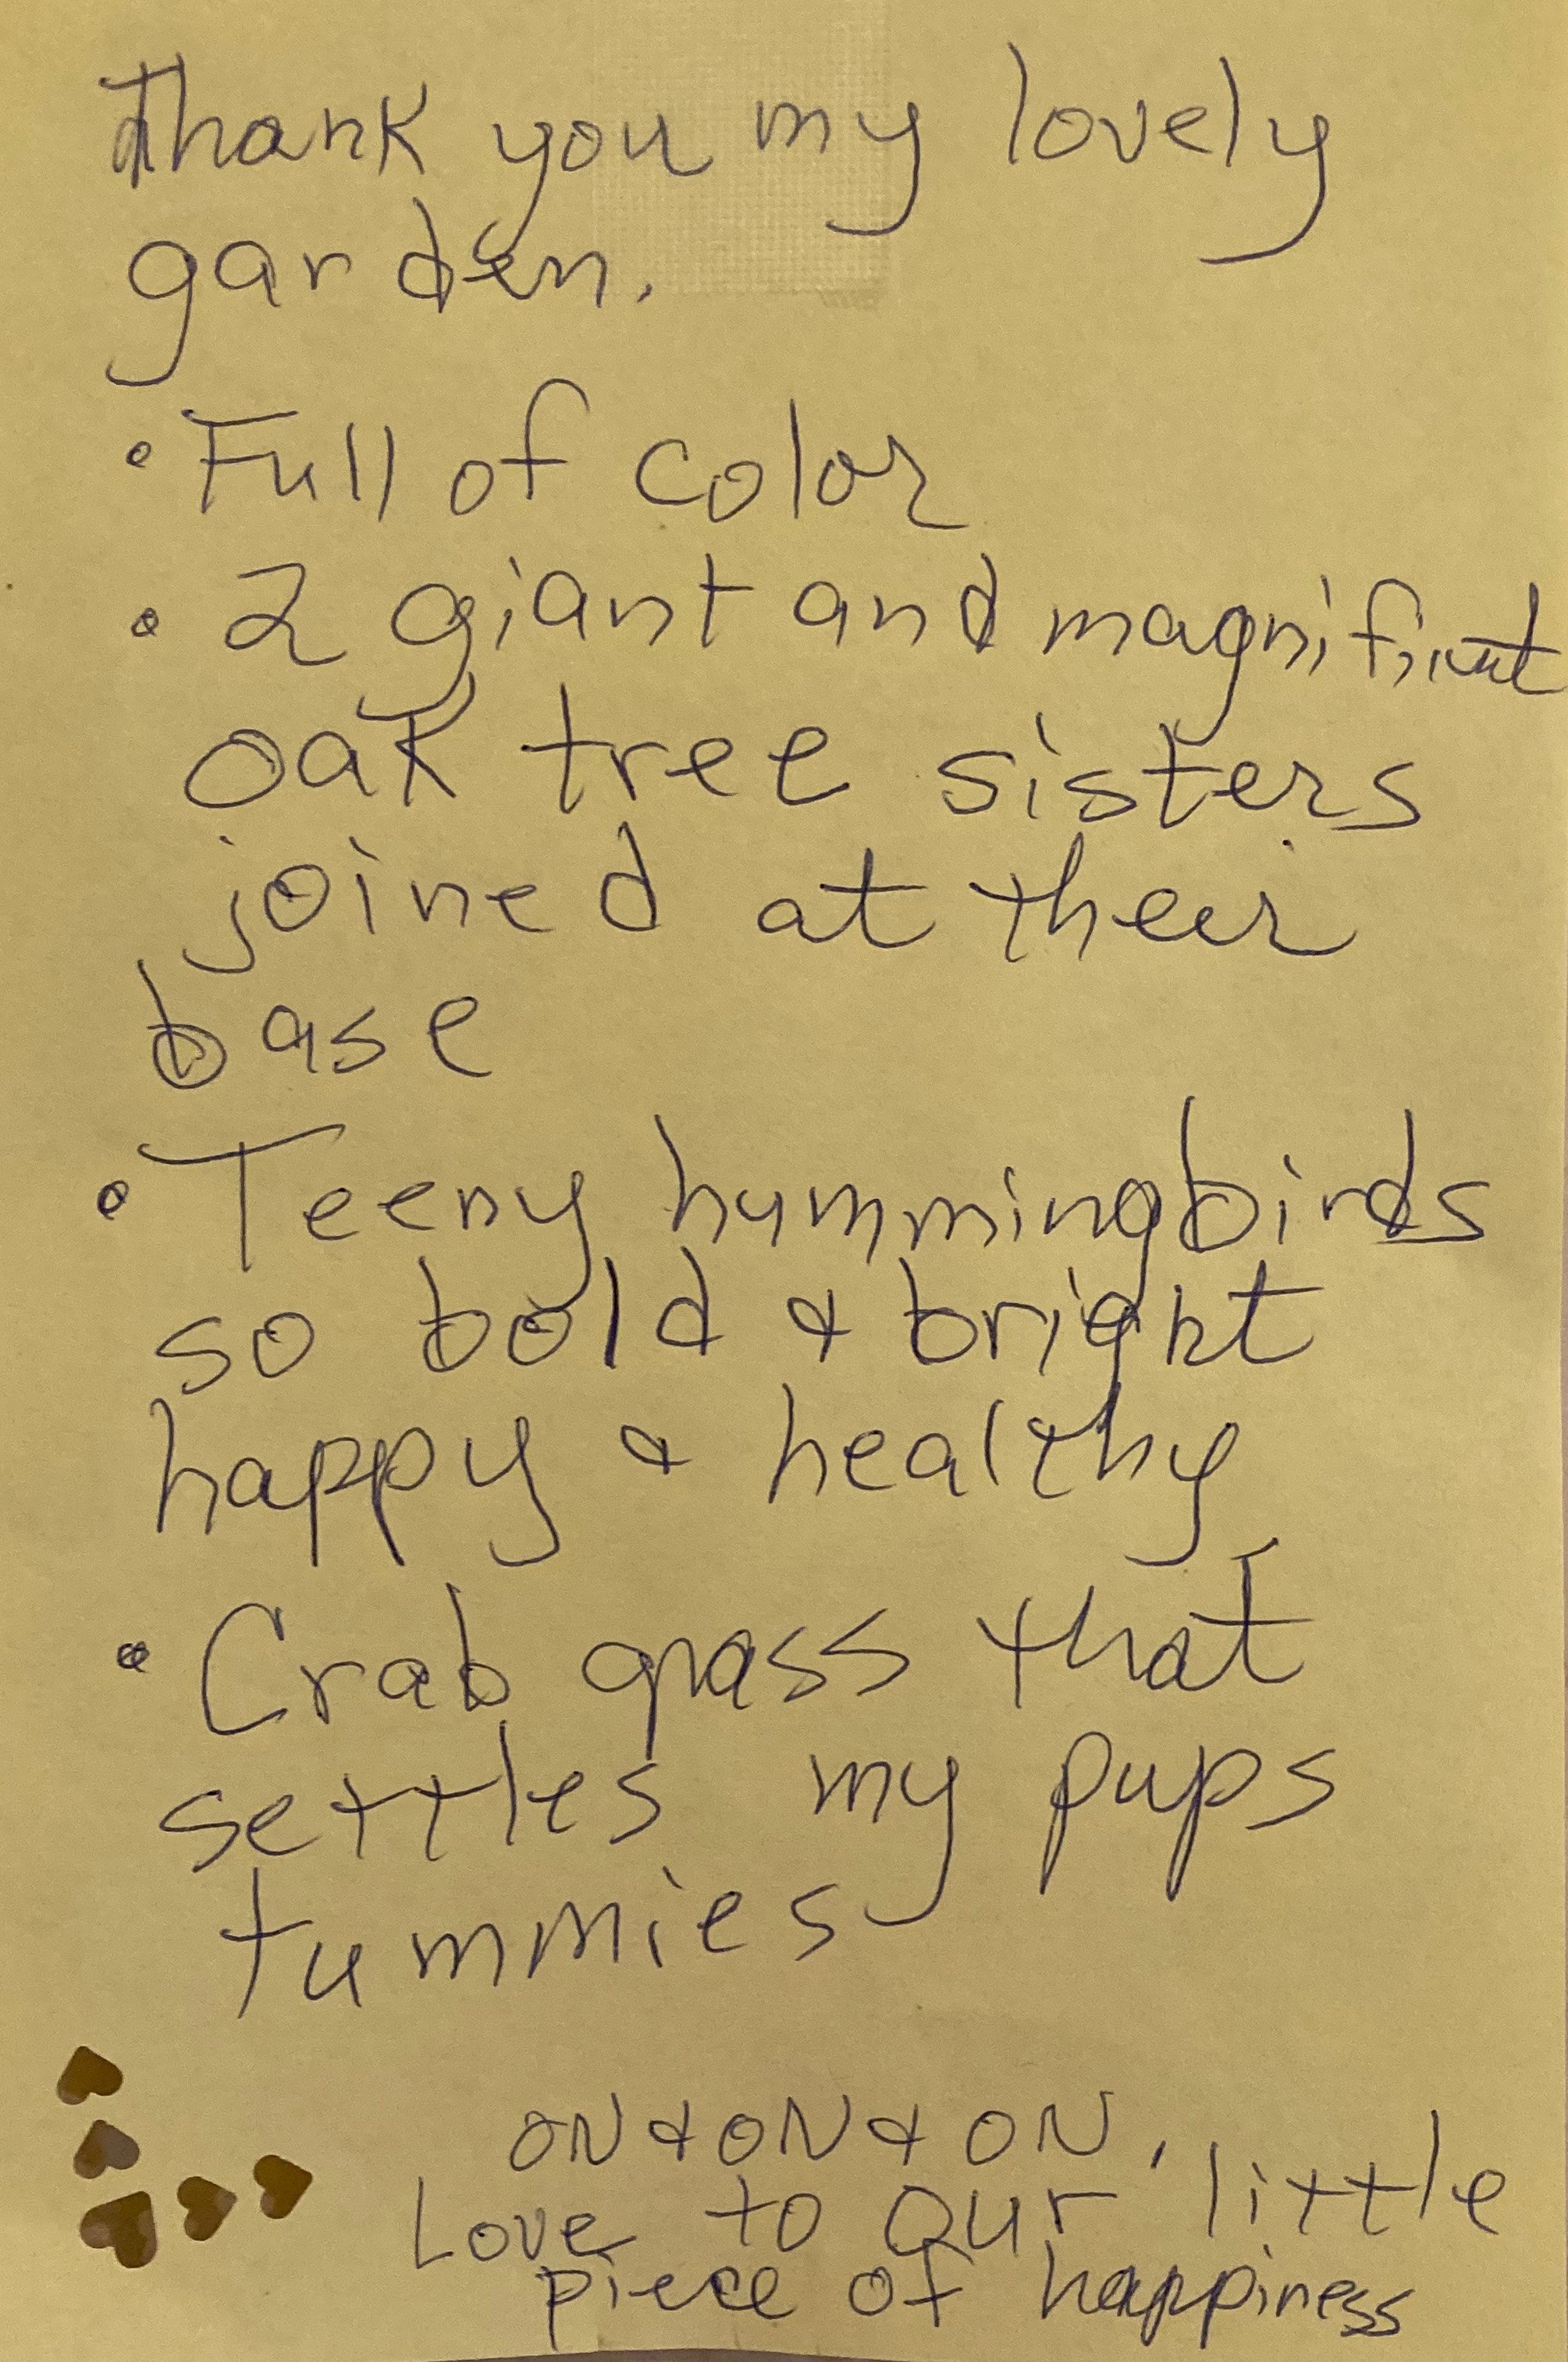 Thank you my lovely
garden.
• Full of color
• 2 giant and magnificent
oak tree sisters
joined at their
base
• Teeny hummingbirds
so bold & bright
happy & healthy
• Crab grass that
settles my pups
tummies
ON & ON & ON.
Love to our little
piece of happiness